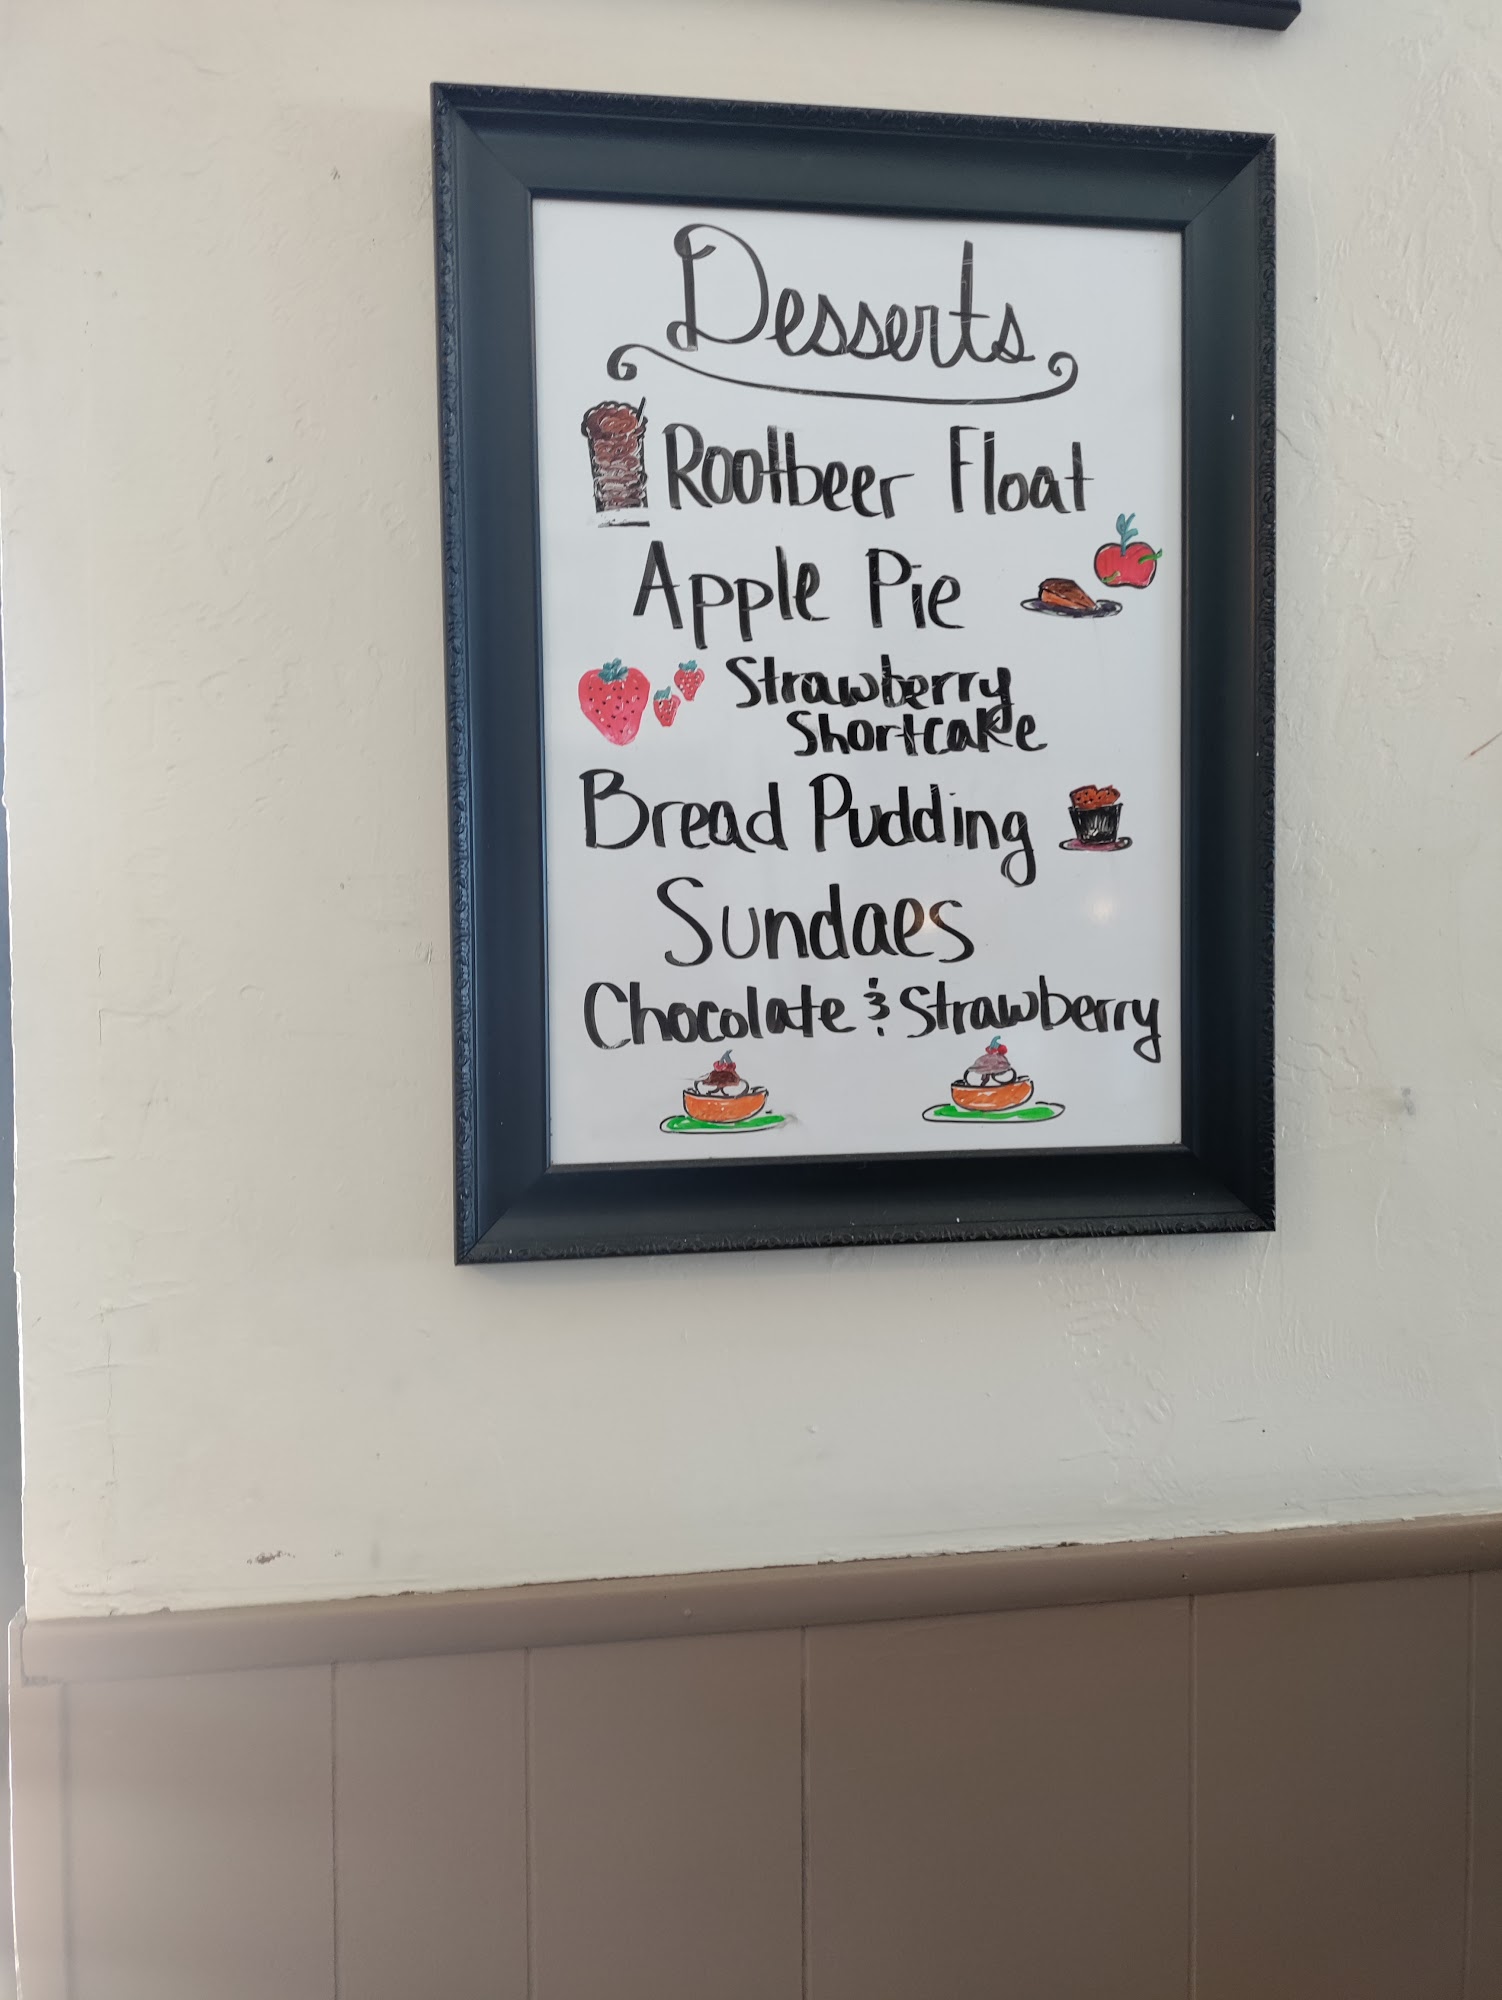 Desserts
Rootbeer Float
Apple Pie
Strawberry
Shortcake
Bread Pudding
Sundaes
Chocolate & Strawberry